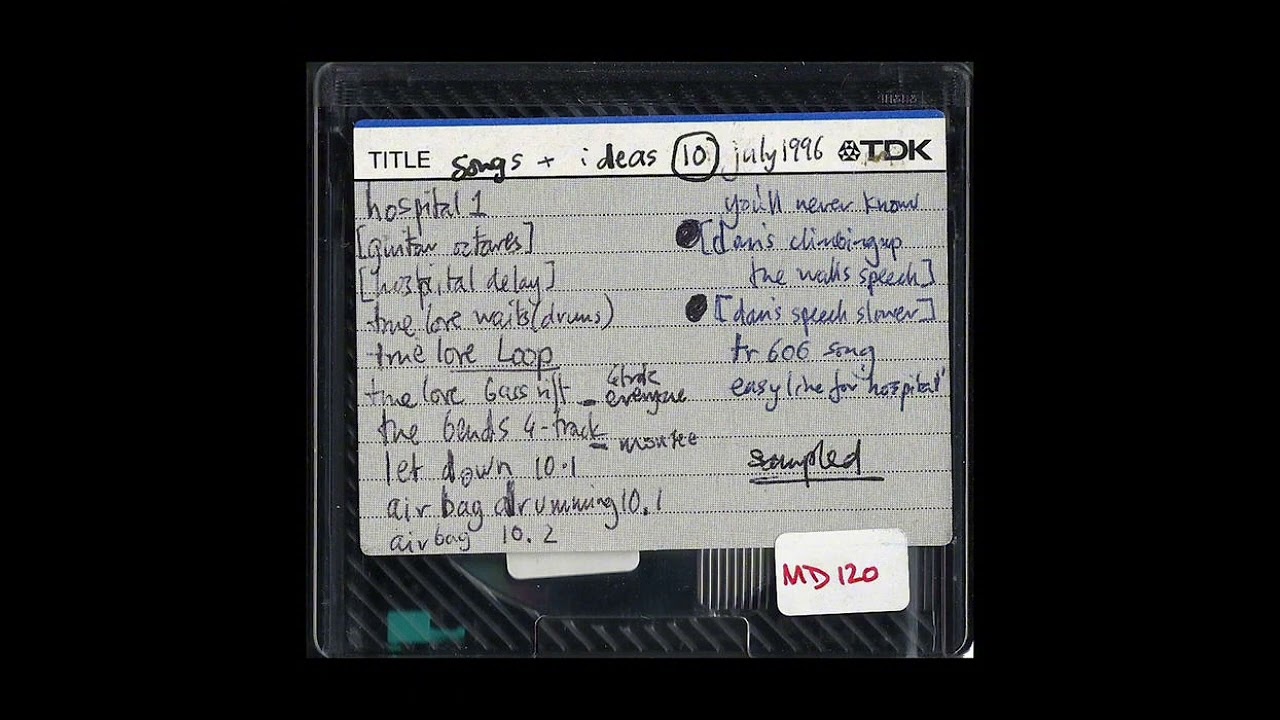 TITLE songs + ideas 10 july 1996 TDK
hospital 1
[guitar octaves]
[hospital delay]
true love waits (drums)
true love Loop
true love bass riff -
everyone
the bends 4-track -
let down 10.1
air bag drumming 10.1
airbag 10.2
you'll never know
[dan's climbing up
the walls speech]
[dan's speech slower]
tr 606 song
easy line for 'hospital'
sampled
MD 120